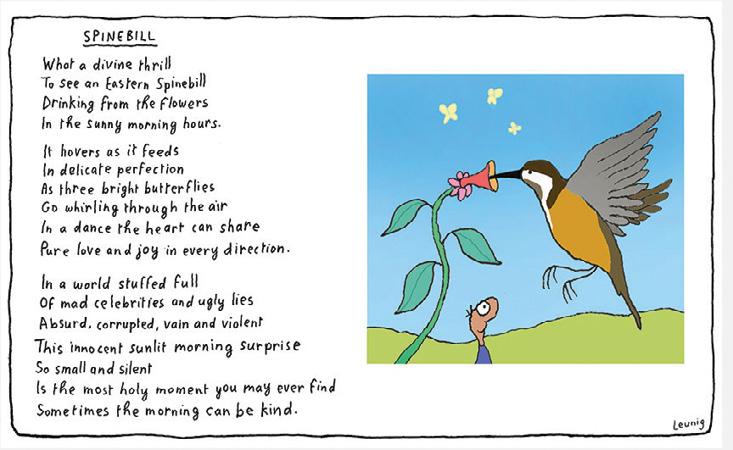 SPINEBILL
What a divine thrill
To see an Eastern Spinebill
Drinking from the flowers
In the sunny morning hours.
It hovers as it feeds
In delicate perfection
As three bright butterflies
Go whirling through the air
In a dance the heart can share
Pure love and joy in every direction.
In a world stuffed full
Of mad celebrities and ugly lies
Absurd, corrupted, vain and violent
This innocent sunlit morning surprise
So small and silent
Is the most holy moment you may ever find
Sometimes the morning can be kind.
Leunig